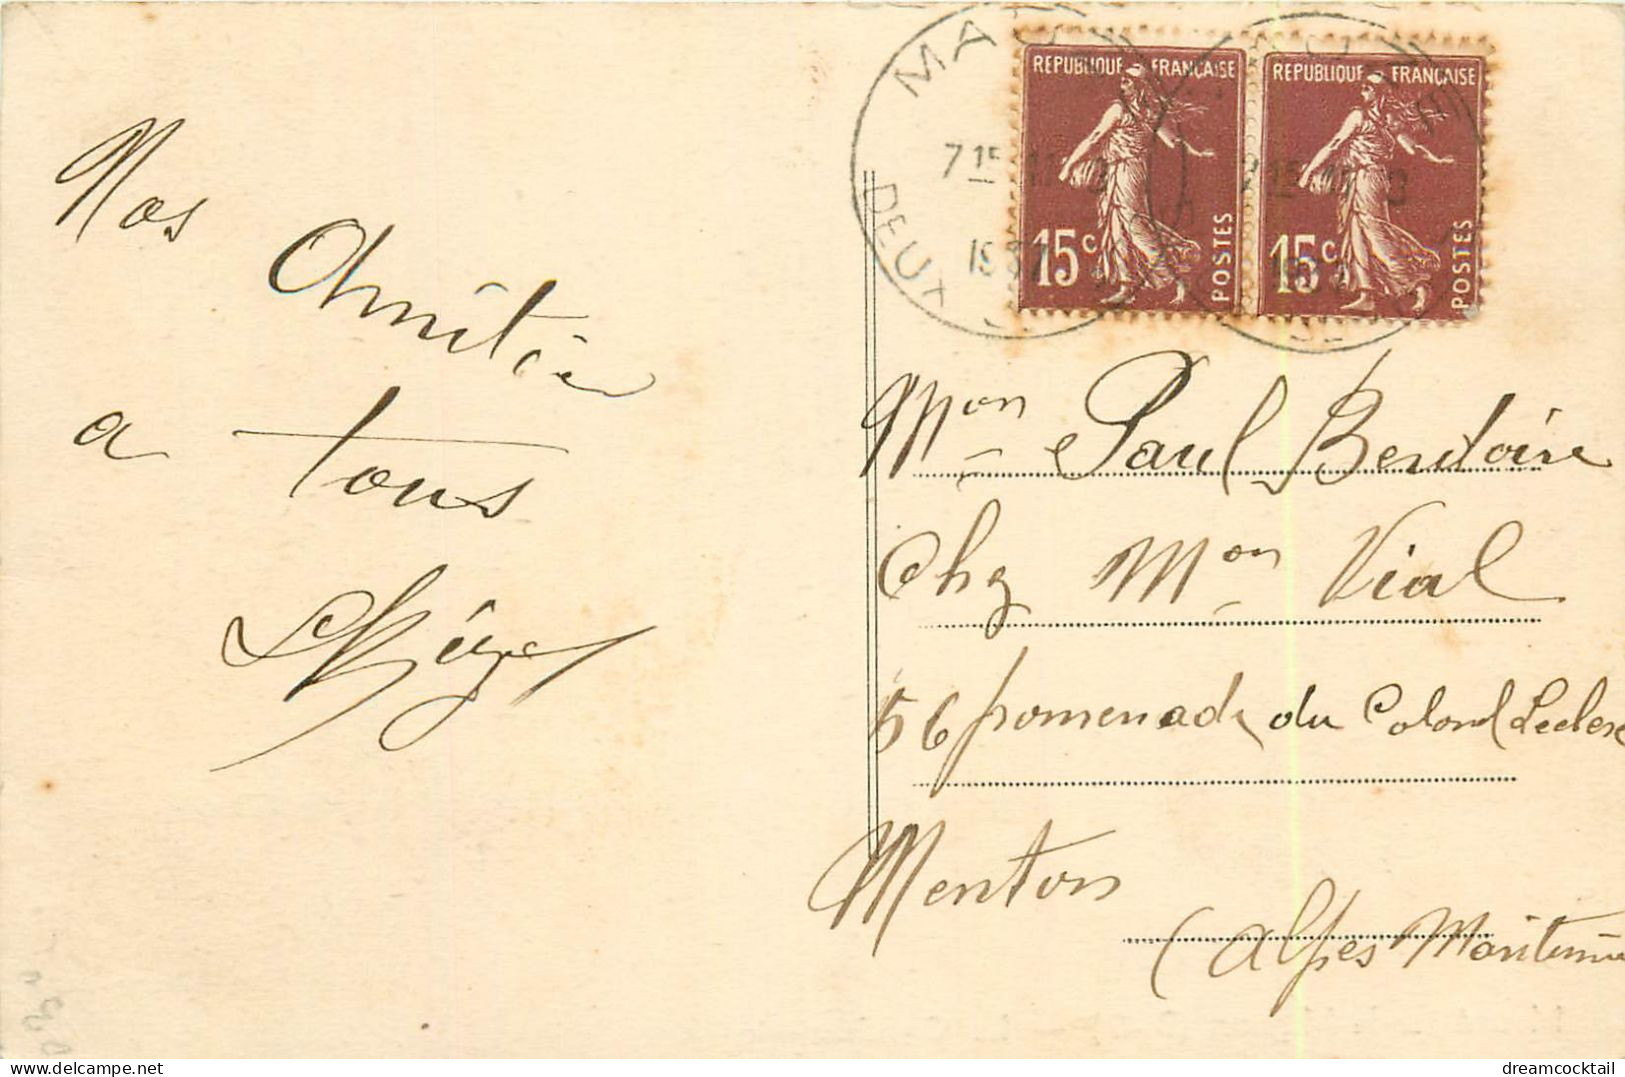 Nos
Amitiés
a tous
REPUBLIQUE FRANÇAISE
15c
POSTES
REPUBLIQUE FRANÇAISE
15c
POSTES
DEUX
1937
Mon Paul Berdoire
Chez Mon Vial
56 promenade du Colonel Leclerc
Menton
(Alpes Maritimes
dreamcocktail